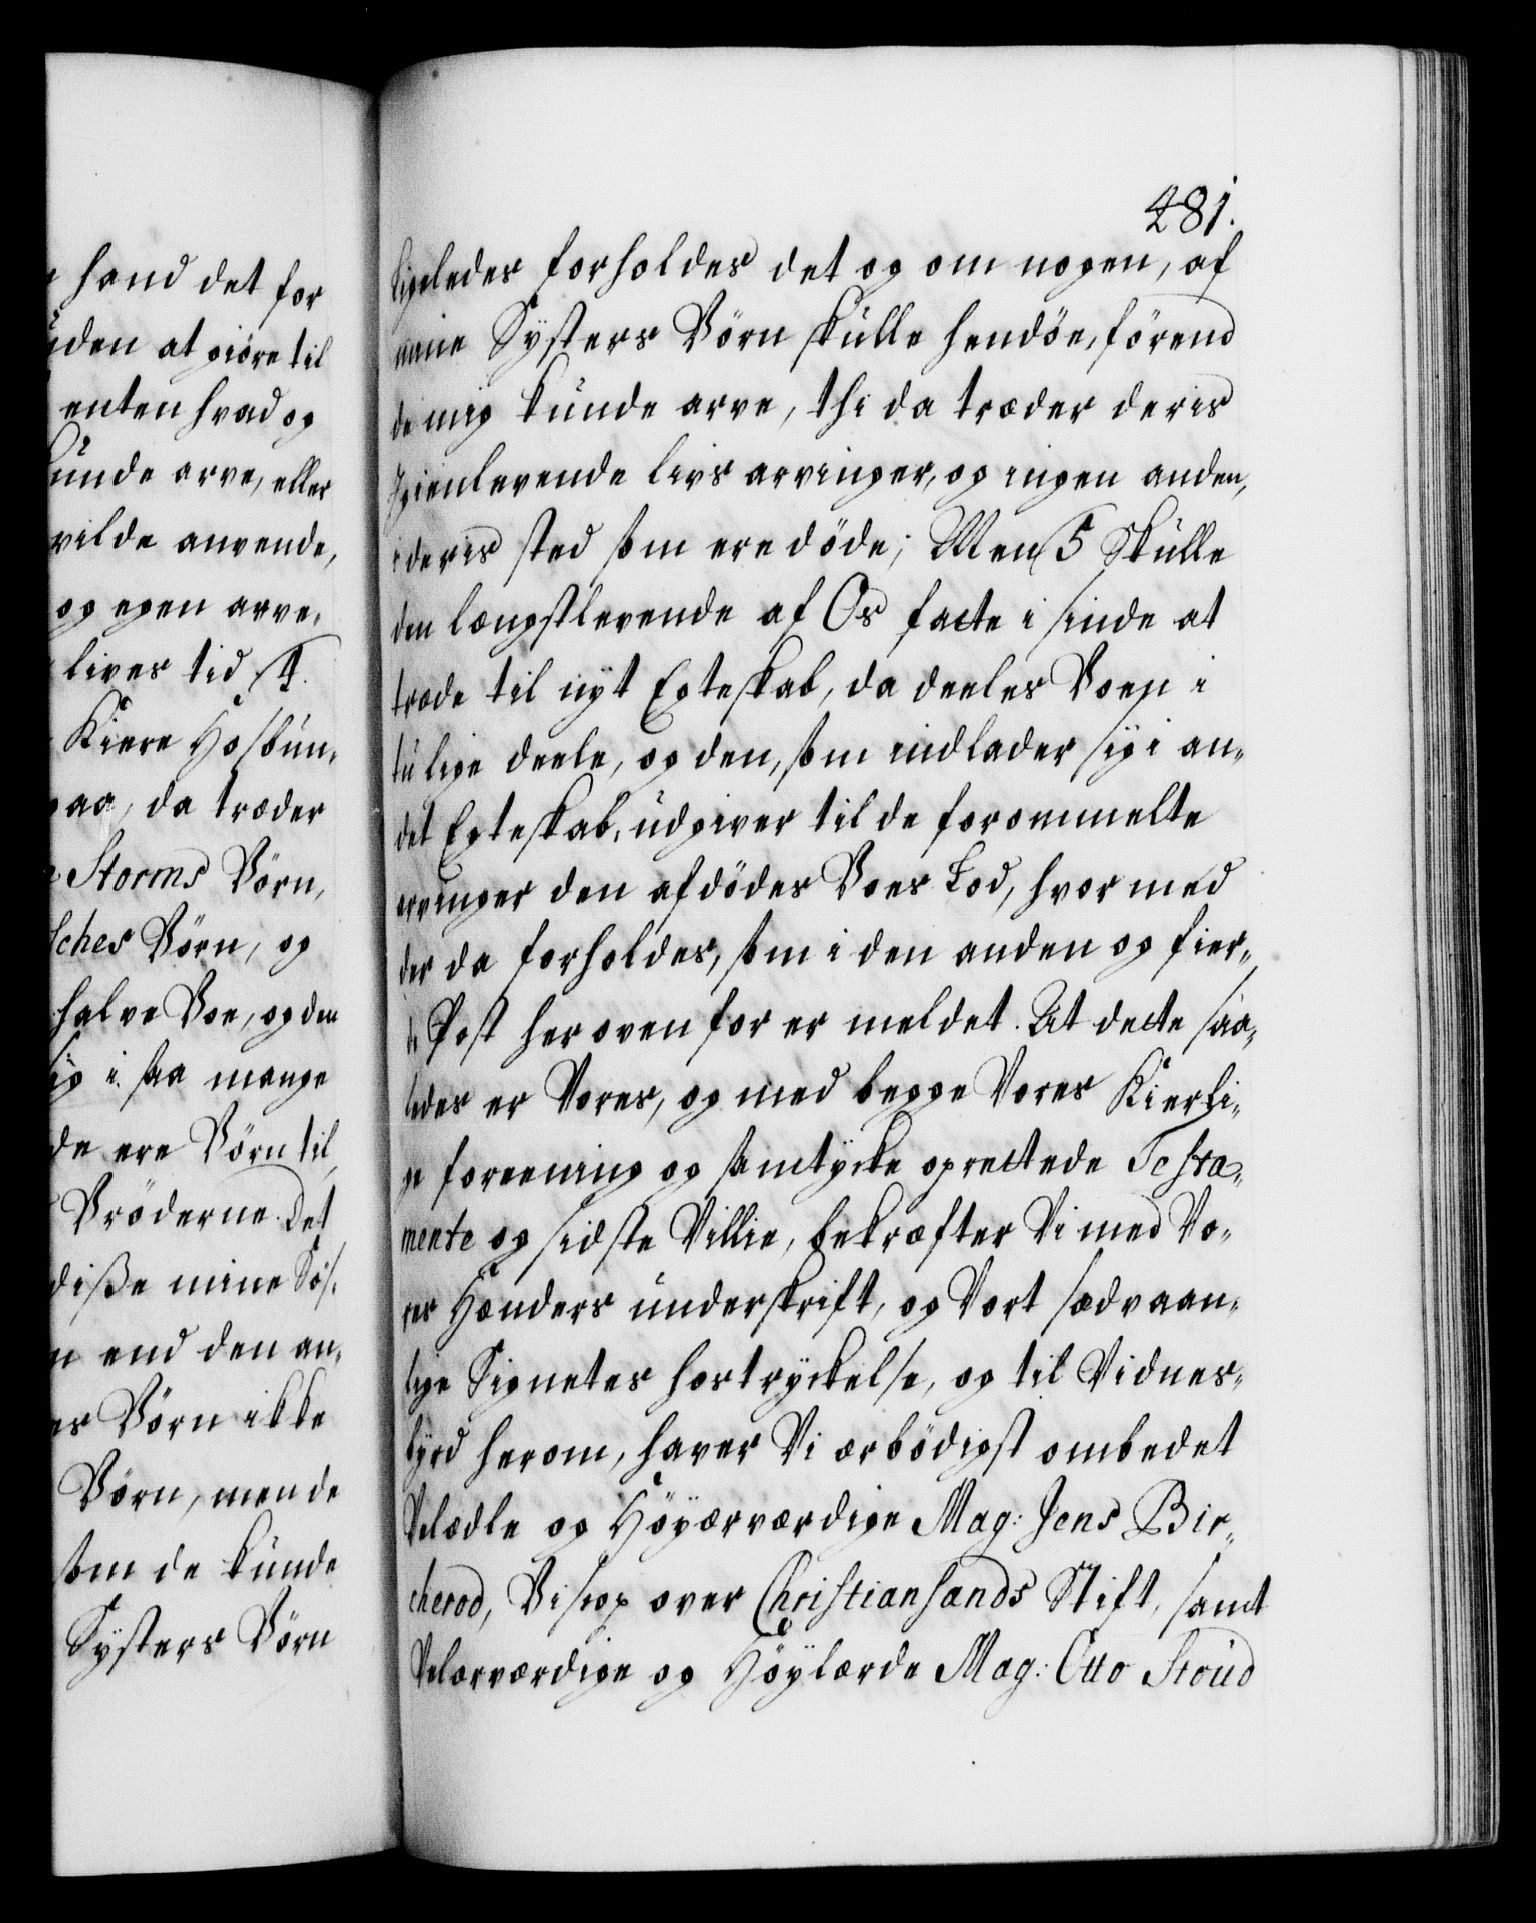 hand det for
uden at giöre til
enten hvad og
kunde arve, eller
vilde anvende,
og egen arve,
lives tid §4.
Kiere Hosbun-
paa, da træder
Storms Börn,
sches Börn, og
halve Boe, og den
sig i saa mange
de ere Börn til,
Bröderne. Det
disse mine Sös-
end den an-
es Börn ikke
Börn, men de
som de kunde
Systers Börn
281.
Ligeledes forholdes det og om nogen, af
mine Systers Börn skulle hendöe, förend
de mig kunde arve, thi da træder deris
Igienlevende livs arvinger, og ingen anden,
i deris sted som ere döde; Men §5 Skulle
den længstlevende af Os satte i sinde at
træde til nyt Egteskab, da deeles Boen i
tu lige deele, og den, som indlader sig i an-
det Egteskab, udgiver til de forommelte
arvinger den afdödes Boes Lod, hvor med
der da forholdes, som i den anden og fier-
de Post her oven for er meldet. At dette saa-
ledes er Vores, og med begge Vores Kierli-
ge foreening og samtycke oprettede Testa-
mente og sidste Villie, bekræfter Vi med Vo-
res Hænders underskrift, og Vort sædvaan-
lige Signetes hostryckelse, og til Vidnes-
byrd herom, haver Vi ærbödigst ombedet
Velædle og Höyærværdige Mag: Jens Bir-
cherod, Biscop over Christiansands Stift, samt
Velærværdige og Höylærde Mag: Otto Stoud